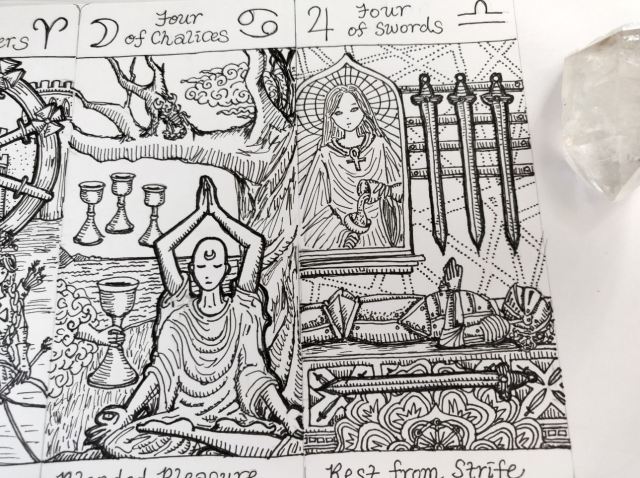 Four
of Chalices
Four
of Swords
Blended Pleasure
Rest from Strife